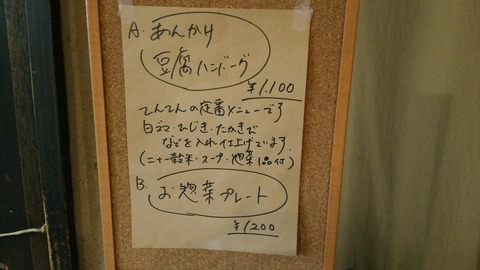 A. あんかけ
豆腐ハンバーグ
¥1,100
てんてんの定番メニューです
白ゴマ・ひじき・たかきび
などを入れ仕上げています
(二十一穀米・スープ・惣菜1品付)
B.
お惣菜プレート
¥1,200